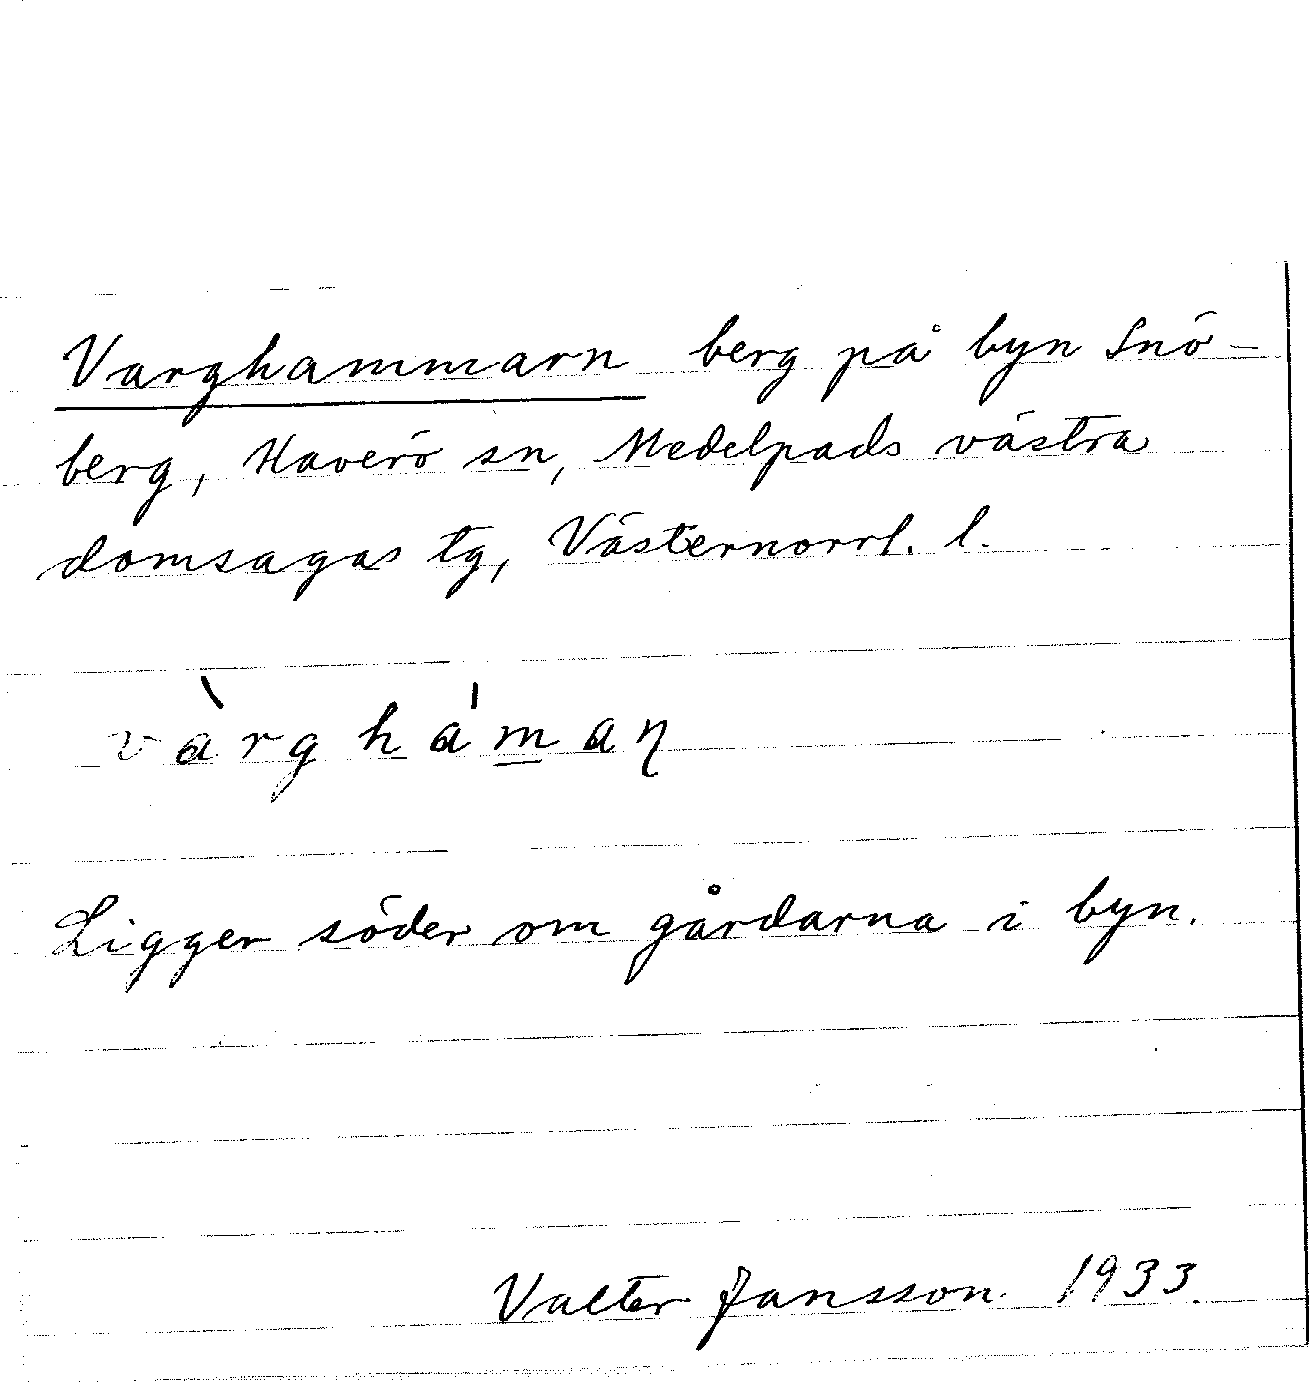 Varghammarn berg på byn Snö-
berg, Haverö sn, Medelpads västra
domsagas tg, Västernorrl. l.
vàrghámaɳ
Ligger söder om gårdarna i byn.
Valter Jansson 1933.